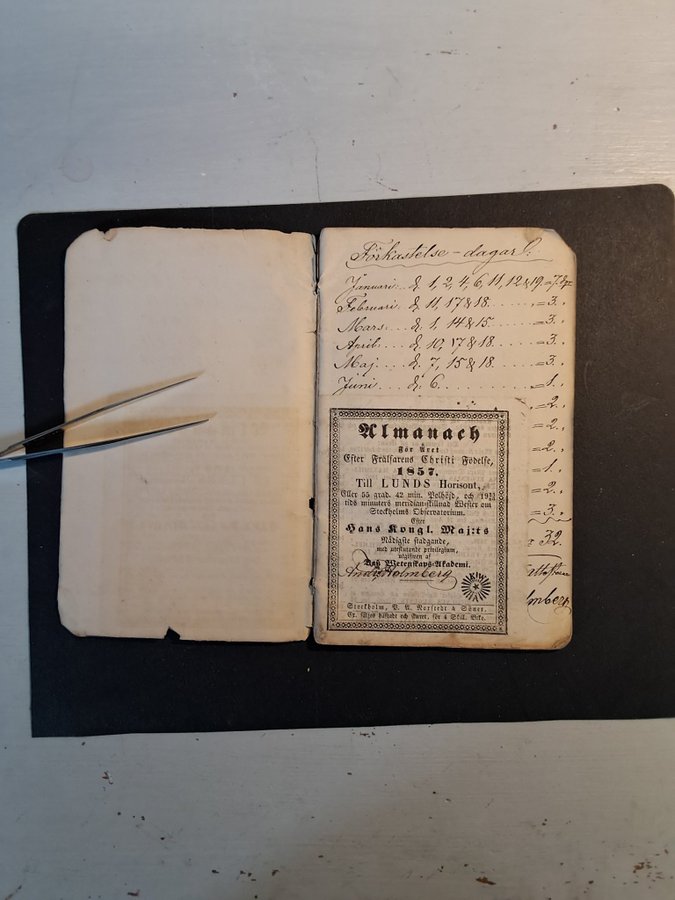 Förkastelse-dagar:
Januari. d. 1, 2, 4, 6, 11, 12 & 19. = 7.
Februari. d. 11, 17 & 18. = 3.
Mars. d. 1, 14 & 15. = 3.
April. d. 10, 17 & 18. = 3.
Maj. d. 7, 15 & 18. = 3.
Juni. d. 6. = 1.
= 2.
= 2.
= 2.
= 1.
= 2.
= 3.
32.
Almanach
För Året
Efter Frälsarens Christi Födelse,
1857.
Till LUNDS Horisont,
Eller 55 grad. 42 min. Polhöjd, och 19
tids minuters meridian-skillnad Wester om
Stockholms Observatorium.
Efter
Hans Kongl. Maj:ts
Nådigste stadgande,
med uteslutande privilegium,
utgifven af
Dess Wetenskaps-Akademi.
Holmberg
lmberg
Stockholm, P. A. Norstedt & Söner.
Ex. säljes häftadt och skuret, för 4 Skill. B:ko.